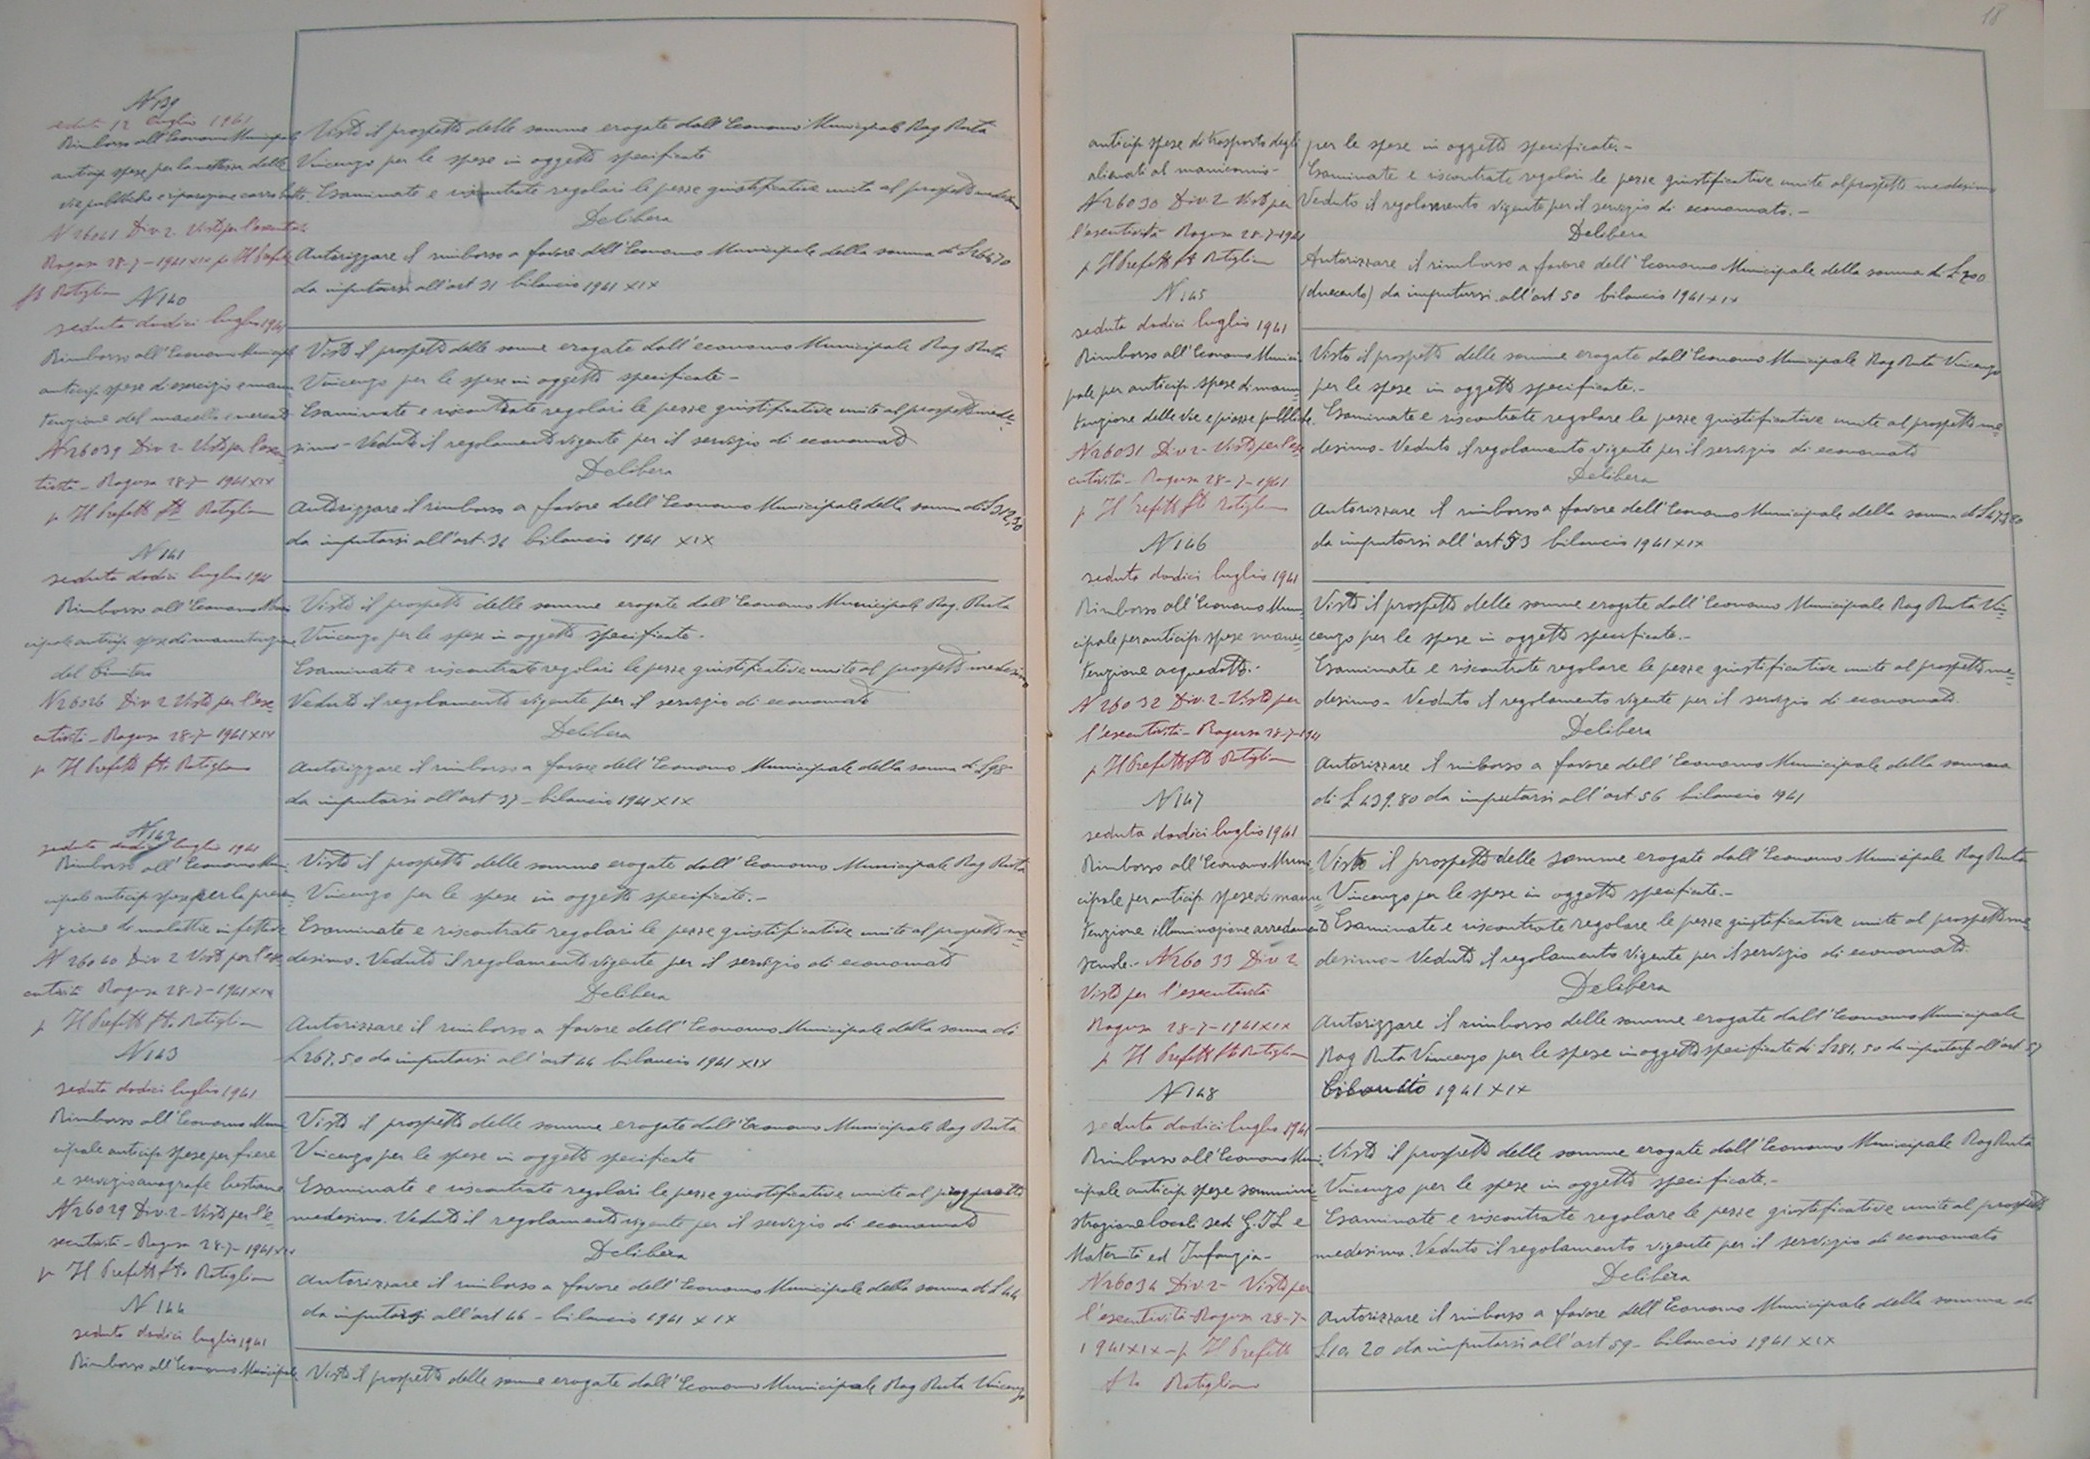 N 139
seduta 12 luglio 1941
Rimborso all'Economo Municipale
anticip. spese per la nettezza delle
vie pubbliche e riparazione carro botte
N 26041 Div. 2 Visto per l'esecutività
Ragusa 28-7-1941 XIX p. Il Prefetto
fto Ratiglia
Visto il prospetto delle somme erogate dall'Economo Municipale Rag Ruta
Vincenzo per le spese in oggetto specificate
Esaminate e riscontrate regolari le pezze giustificative unite al prospetto medesimo
Delibera
Autorizzare il rimborso a favore dell'Economo Municipale della somma di £
da imputarsi all'art 31 bilancio 1941 XIX
N 140
seduta dodici luglio 1941
Rimborso all'Economo Municipale
anticip. spese di esercizio e manu=
tenzione del macello e mercato
N 26039 Div 2- Visto per l'esecu=
tività - Ragusa 28-7-1941 XIX
p Il Prefetto fto Ratiglia
Visto il prospetto delle somme erogate dall'economo Municipale Rag Ruta
Vincenzo per le spese in oggetto specificate -
Esaminate e riscontrate regolari le pezze giustificative unite al prospetto mede=
simo - Veduto il regolamento vigente per il servizio di economato
Delibera
Autorizzare il rimborso a favore dell'Economo Municipale della somma di £ 312,30
da imputarsi all'art. 34 bilancio 1941 XIX
N 141
seduta dodici luglio 1941
Rimborso all'Economo Muni
cipale anticip. spese di manutenzione
del Cimitero
N 26026 Div 2 Visto per l'ese=
cutività - Ragusa 28-7-1941 XIX
p Il Prefetto fto Ratiglia
Visto il prospetto delle somme erogate dall'Economo Municipale Rag. Ruta
Vincenzo per le spese in oggetto specificate.
Esaminate e riscontrate regolari le pezze giustificative unite al prospetto medesimo
Veduto il regolamento vigente per il servizio di economato
Delibera
Autorizzare il rimborso a favore dell'Economo Municipale della somma di £ 98
da imputarsi all'art 37 - bilancio 1941 XIX
N 142
seduta dodici luglio 1941
Rimborso all'Economo Muni=
cipale anticip. spese per la preven=
zione di malattie infettive
N 26040 Div 2 Visto per l'ese
cutività Ragusa 28-7-1941 XIX
p Il Prefetto fto Ratiglia
Visto il prospetto delle somme erogate dall'Economo Municipale Rag Ruta
Vincenzo per le spese in oggetto specificate.-
Esaminate e riscontrate regolari le pezze giustificative unite al prospetto me=
desimo. Veduto il regolamento vigente per il servizio di economato
Delibera
Autorizzare il rimborso a favore dell'Economo Municipale della somma di
£ 267,50 da imputarsi all'art 44 bilancio 1941 XIX
N 143
seduta dodici luglio 1941
Rimborso all'Economo Muni
cipale anticip. spese per fiere
e servizio anagrafe bestiame
N 26029 Div. 2 - Visto per l'e=
secutività - Ragusa 28-7-1941 XIX
p Il Prefetto fto Ratiglia
Visto il prospetto delle somme erogate dall'Economo Municipale Rag Ruta
Vincenzo per le spese in oggetto specificate
Esaminate e riscontrate regolari le pezze giustificative unite al prospetto
medesimo. Veduto il regolamento vigente per il servizio di economato
Delibera
Autorizzare il rimborso a favore dell'Economo Municipale della somma di £ 44
da imputarsi all'art 46 - bilancio 1941 XIX
N 144
seduta dodici luglio 1941
Rimborso all'Economo Municipale
Visto il prospetto delle somme erogate dall'Economo Municipale Rag Ruta Vincenzo
18
anticip. spese di trasporto degli
alienati al manicomio -
N 26030 Div. 2 Visto per
l'esecutività Ragusa 28-7-1941
p Il Prefetto fto Ratiglia
per le spese in oggetto specificate.-
Esaminate e riscontrate regolari le pezze giustificative unite al prospetto medesimo
Veduto il regolamento vigente per il servizio di economato.-
Delibera
Autorizzare il rimborso a favore dell'Economo Municipale della somma di £ 200
(duecento) da imputarsi all'art 50 bilancio 1941 XIX
N 145
seduta dodici luglio 1941
Rimborso all'Economo Munici=
pale per anticip. spese di manu=
tenzione delle vie e piazze pubbliche
N 26031 Div 2 - Visto per l'ese
cutività - Ragusa 28-7-1941
p Il Prefetto fto Ratiglia
Visto il prospetto delle somme erogate dall'Economo Municipale Rag Ruta Vincenzo
per le spese in oggetto specificate.-
Esaminate e riscontrate regolare le pezze giustificative unite al prospetto me=
desimo - Veduto il regolamento vigente per il servizio di economato
Delibera
Autorizzare il rimborso a favore dell'Economo Municipale della somma di £
da imputarsi all'art 53 bilancio 1941 XIX
N 146
seduta dodici luglio 1941
Rimborso all'Economo Muni
cipale per anticip. spese manu=
tenzione acquedotto.
N 26032 Div. 2 - Visto per
l'esecutività - Ragusa 28-7-1941
p Il Prefetto fto Ratiglia
Visto il prospetto delle somme erogate dall'Economo Municipale Rag Ruta Vin=
cenzo per le spese in oggetto specificate.-
Esaminate e riscontrate regolare le pezze giustificative unite al prospetto me=
desimo - Veduto il regolamento vigente per il servizio di economato.
Delibera
Autorizzare il rimborso a favore dell'Economo Municipale della somma
di £ 439.80 da imputarsi all'art. 56 bilancio 1941
N 147
seduta dodici luglio 1941
Rimborso all'Economo Muni=
cipale per anticip. spese di manu=
tenzione illuminazione arredamento
scuole.- N 26033 Div 2
Visto per l'esecutività
Ragusa 28-7-1941 XIX
p Il Prefetto fto Ratiglia
Visto il prospetto delle somme erogate dall'Economo Municipale Rag Ruta
Vincenzo per le spese in oggetto specificate.-
Esaminate e riscontrate regolare le pezze giustificative unite al prospetto me=
desimo - Veduto il regolamento vigente per il servizio di economato.
Delibera
Autorizzare il rimborso delle somme erogate dall'Economo Municipale
Rag Ruta Vincenzo per le spese in oggetto specificate di £ 281,50 da imputarsi all'art 57
bilancio 1941 XIX
N 148
seduta dodici luglio 1941
Rimborso all'Economo Muni=
cipale anticip. spese sommini
strazione locali sedi G.I.L e
Maternità ed Infanzia -
N 26034 Div 2 - Visto per
l'esecutività - Ragusa 28-7-
1941 XIX - p Il Prefetto
fto Ratiglia
Visto il prospetto delle somme erogate dall'Economo Municipale Rag Ruta
Vincenzo per le spese in oggetto specificate.-
Esaminate e riscontrate regolare le pezze giustificative unite al prospetto
medesimo. Veduto il regolamento vigente per il servizio di economato
Delibera
Autorizzare il rimborso a favore dell'Economo Municipale della somma di
£ 20 da imputarsi all'art 59 - bilancio 1941 XIX